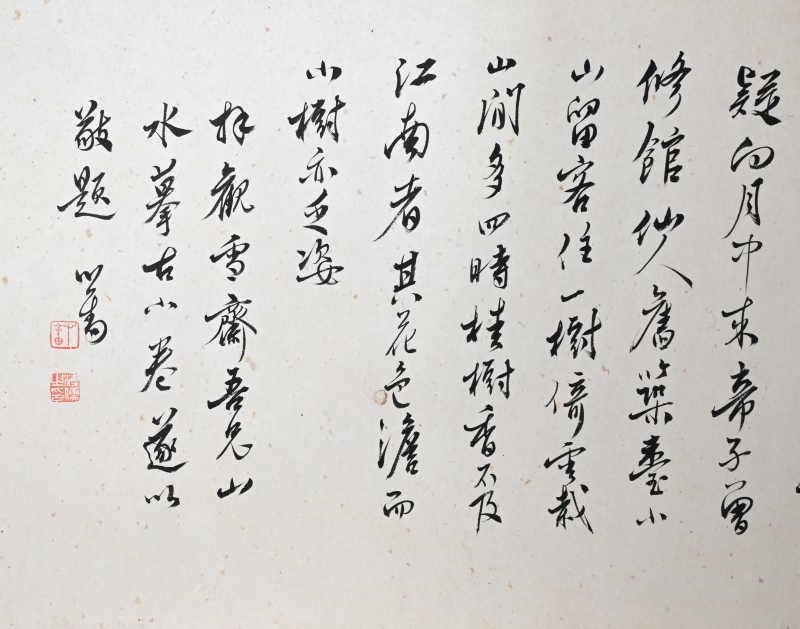 疑向月中來帝子曾
修館仙人舊築臺小
山留客住一樹倚雲栽
山澗多四時桂樹香不及
江南者其花色澹而
小樹亦乏姿
拜觀雪齋吾兄山
水摹古小卷遂以
敬題 心畬